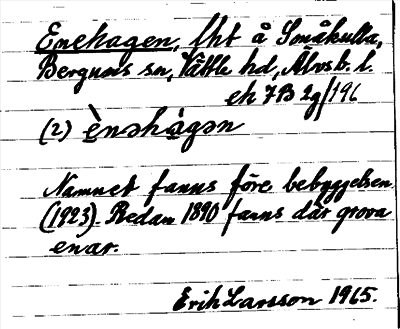 Enehagen, fht å Småkulla,
Bergums sn, Vättle hd, Älvsb. l.
ek 7B 2g/196
(2) è̱nəhà̱gən
Namnet fanns före bebyggelsen
(1923). Redan 1890 fanns där grova
enar.
Erik Larsson 1965.